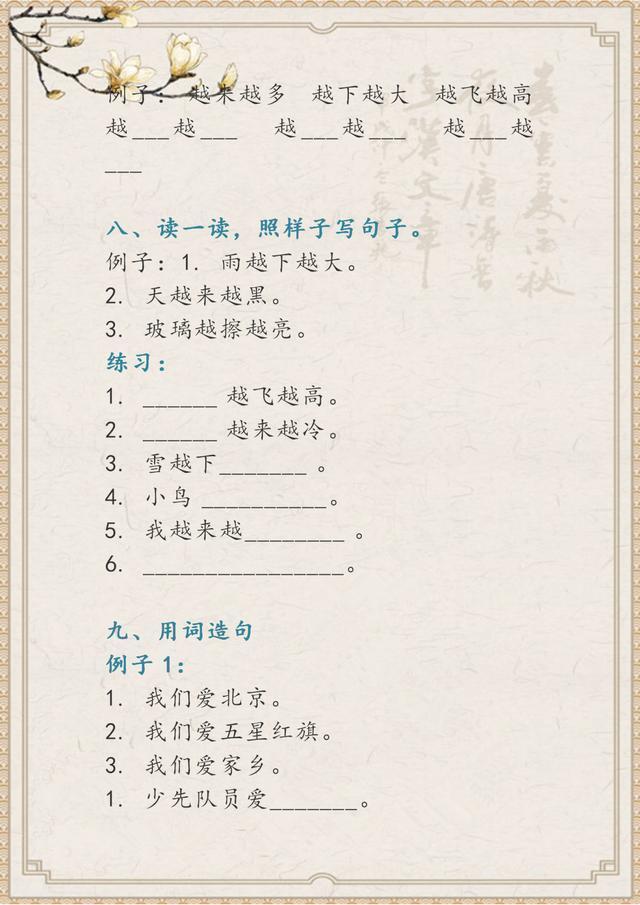 例子： 越来越多  越下越大  越飞越高
越___越___   越___越___   越___越
___
八、读一读，照样子写句子。
例子：1. 雨越下越大。
2. 天越来越黑。
3. 玻璃越擦越亮。
练习：
1. ______ 越飞越高。
2. ______ 越来越冷。
3. 雪越下_______ 。
4. 小鸟 __________。
5. 我越来越________ 。
6. ________________。
九、用词造句
例子 1：
1. 我们爱北京。
2. 我们爱五星红旗。
3. 我们爱家乡。
1. 少先队员爱_______。